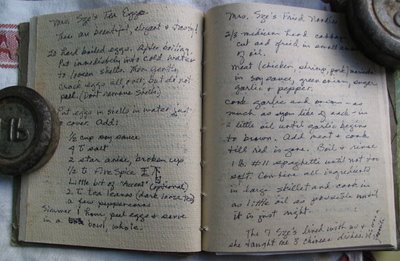 Mrs. Sze's Tea Eggs
These are beautiful, elegant &
20 hard boiled eggs. After boiling,
Put immediately into cold water
to loosen shells. Then gently
crack eggs all over, but do not
peel. (Don't remove shells)
Put eggs in shells in water just
to cover. Add:
1/2 cup soy sauce
4 T salt
2 star anise, broken up
1/2 t Five Spice
little bit of "Accent" (optional)
2 T tea leaves (dark loose tea)
a few peppercorns
Simmer 1 hour, peel eggs & serve
in a bowl, whole.
Mrs. Sze's Fried Noodles
2/3 medium head cabbage
cut and fried in small amt
of oil.
Meat (chicken, shrimp, pork)
in soy sauce, green onion, sugar
garlic & pepper.
Cook garlic and onion - as
much as you like of each - in
a little oil until garlic begins
to brown. Add meat & cook
till red is gone. Boil & rinse
1 lb. #11 spaghetti until not too
soft. Combine all ingredients
in large skillet and cook in
as little oil as possible until
it is just right.
The Sze's lived with us &
she taught me 3 chinese dishes.